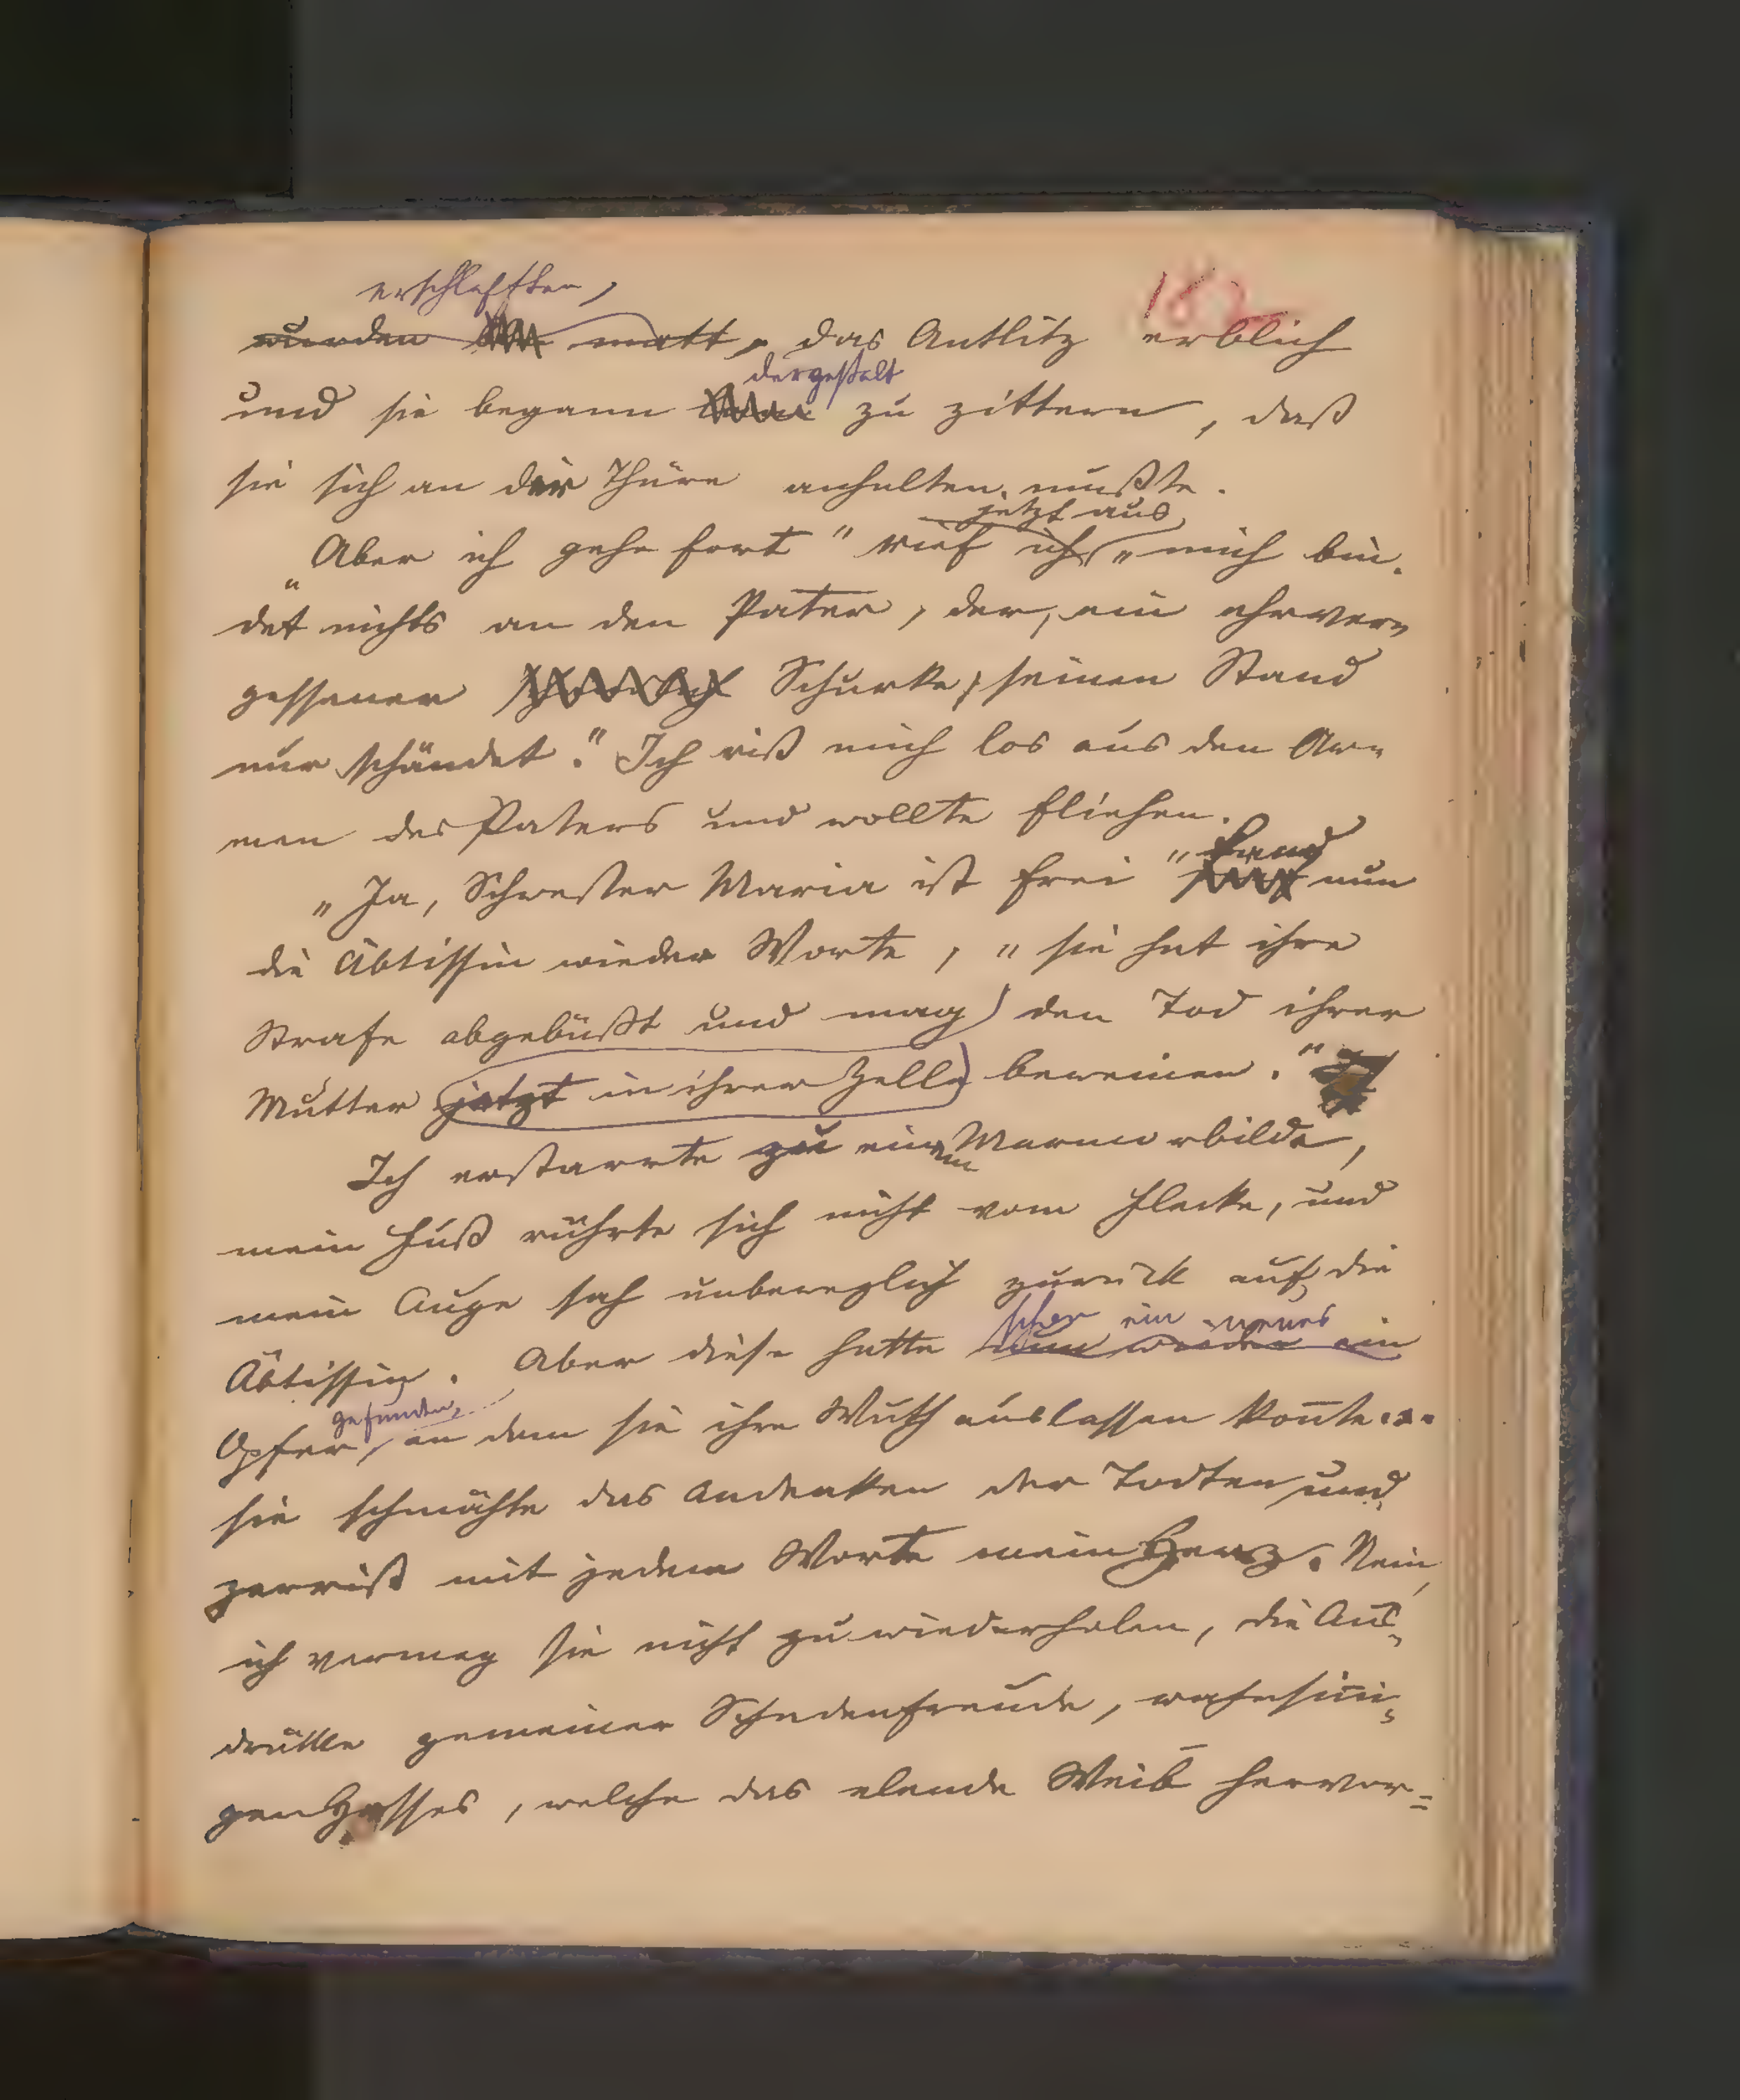 erschlafften,
wurden matt, das Antlitz erblich
dergestalt
und sie begann zu zittern, daß
sie sich an der Thüre anhalten mußte.
jetzt aus
„Aber ich gehe fort" rief ich, „mich bin-
det nichts an den Pater, der, ein ehrver-
gessener Schurke, seinen Stand
nur schändet." Ich riß mich los aus den Ar-
men des Paters und wollte fliehen.
fand
„Ja, Schwester Maria ist frei" nun
die Äbtissin wieder Worte, „sie hat ihre
Strafe abgebüßt und mag den Tod ihrer
Mutter jetzt in ihrer Zelle beweinen."
Ich erstarrte zu einem Marmorbilde,
mein Fuß rührte sich nicht vom Flecke, und
mein Auge sah unbeweglich zurück auf die
schon ein neues
Äbtissin. Aber diese hatte nun wieder ein
gefunden,
Opfer, an dem sie ihre Wuth auslassen kon̄te...
sie schmähte das Andenken der Todten und
zerriß mit jedem Worte mein Herz. Nein,
ich vermag sie nicht zu wiederholen, die Aus-
drücke gemeiner Schadenfreude, wahnsin̄i-
gen Hasses, welche das elende Weib hervor=